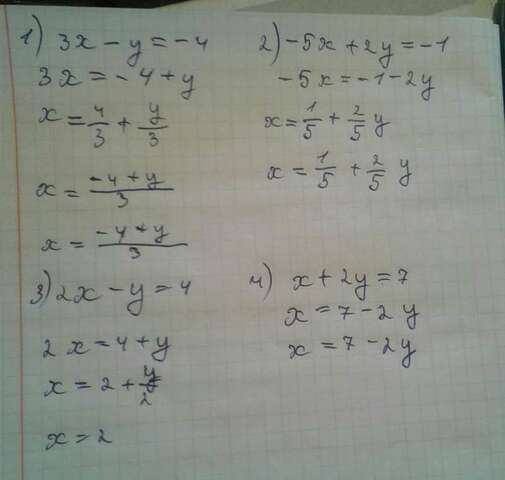 1) 3x - y = -4
3x = -4 + y
x = 4/3 + y/3
x = -4 + y / 3
x = -4 + y / 3
2) -5x + 2y = -1
-5x = -1 - 2y
x = 1/5 + 2/5 y
x = 1/5 + 2/5 y
3) 2x - y = 4
2x = 4 + y
x = 2 + y/2
x = 2
4) x + 2y = 7
x = 7 - 2y
x = 7 - 2y